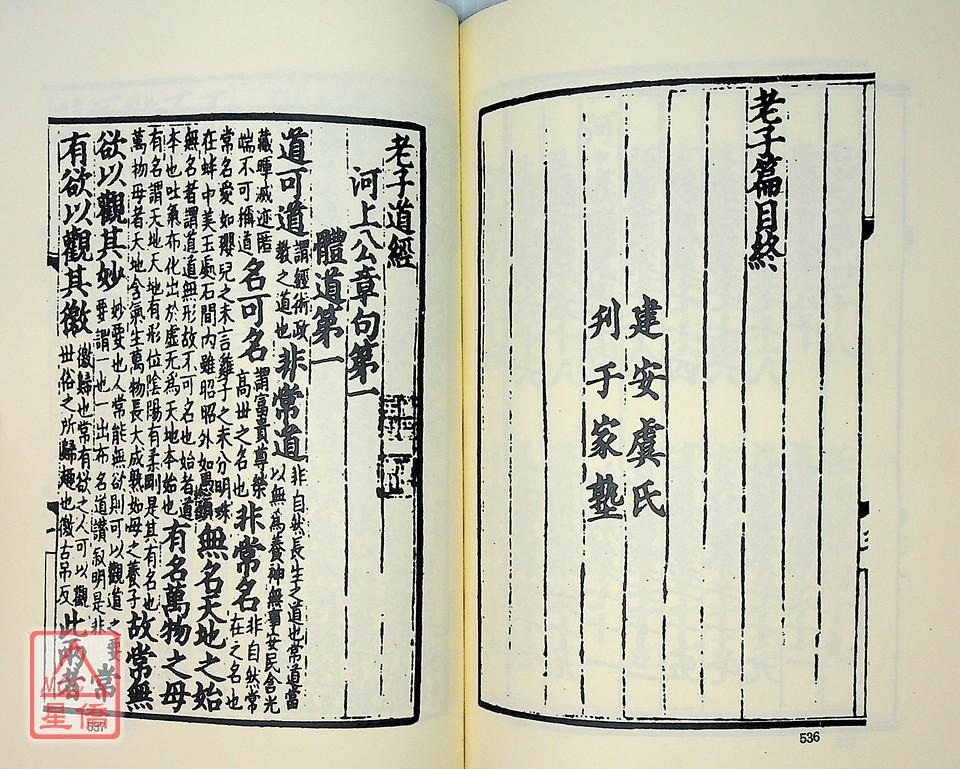 老子篇目終
建安虞氏
刋于家塾
536
老子道經
河上公章句第一
體道第一
道可道謂經術政教之道也非常道非自然長生之道也常道當以無為養神無事安民含光
藏暉滅迹匿端不可稱道名可名謂富貴尊榮高丗之名也非常名非自然常在之名也
常名愛如嬰兒之未言雞子之未分明珠在蚌中美玉處石間內雖昭昭外如愚頑無名天地之始
無名者謂道道無形故不可名也始者道本也吐氣布化出於虛无為天地本始也有名萬物之母
有名謂天地天地有形位陰陽有柔剛是其有名也萬物母者天地含氣生萬物長大成熟如母之養子故常無
欲以觀其妙妙要也人常能無欲則可以觀道之要要謂一也一出布名道讚叙明是非常
有欲以觀其徼徼歸也常有欲之人可以觀丗俗之所歸趣也徼古吊反此兩者
537
星僑